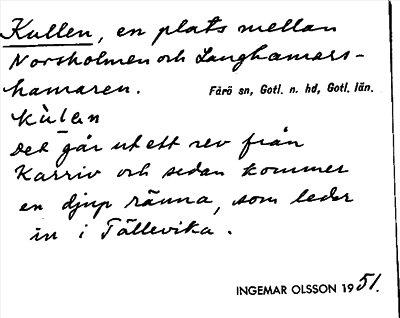 Kullen, en plats mellan
Norsholmen och Langhamars-
hamaren. Fårö sn, Gotl. n. hd, Gotl. län.
kùlan
Det går ut ett rev från
Karriv och sedan kommer
en djup ränna, som leder
in i Tällevika.
INGEMAR OLSSON 1951.